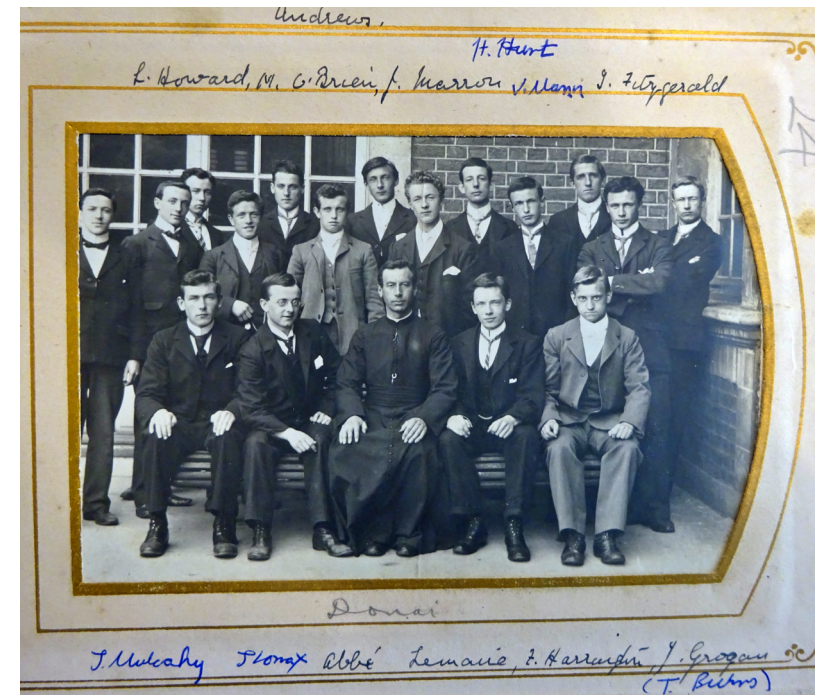 Andrews.
H. Hunt
L. Howard, M. O'Brien, J. Marron V. Mann J. Fitzgerald
24
Douai
J. Mulcahy J Lomax Abbé Lemaire, F. J. Grogan
(T. Burns)